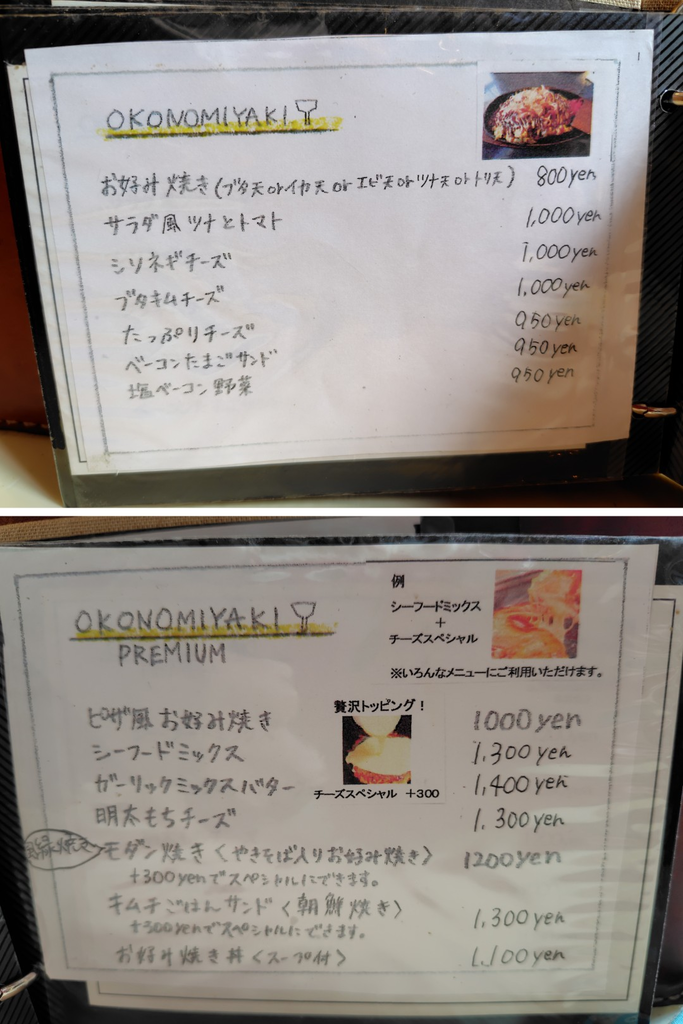 OKONOMIYAKI
お好み焼き(ブタ天orイカ天orエビ天orツナ天orトリ天) 800yen
サラダ風ツナとトマト 1,000yen
シソネギチーズ 1,000yen
ブタキムチーズ 1,000yen
たっぷりチーズ 950yen
ベーコンたまごサンド 950yen
塩ベーコン野菜 950yen
OKONOMIYAKI
PREMIUM
例
シーフードミックス
+
チーズスペシャル
※いろんなメニューにご利用いただけます。
贅沢トッピング!
チーズスペシャル +300
ピザ風お好み焼き 1000yen
シーフードミックス 1,300yen
ガーリックミックスバター 1,400yen
明太もちチーズ 1,300yen
モダン焼き〈やきそば入りお好み焼き〉 1200yen
+300yenでスペシャルにできます。
キムチごはんサンド〈朝鮮焼き〉 1,300yen
+300yenでスペシャルにできます。
お好み焼き丼〈スープ付〉 1,100yen